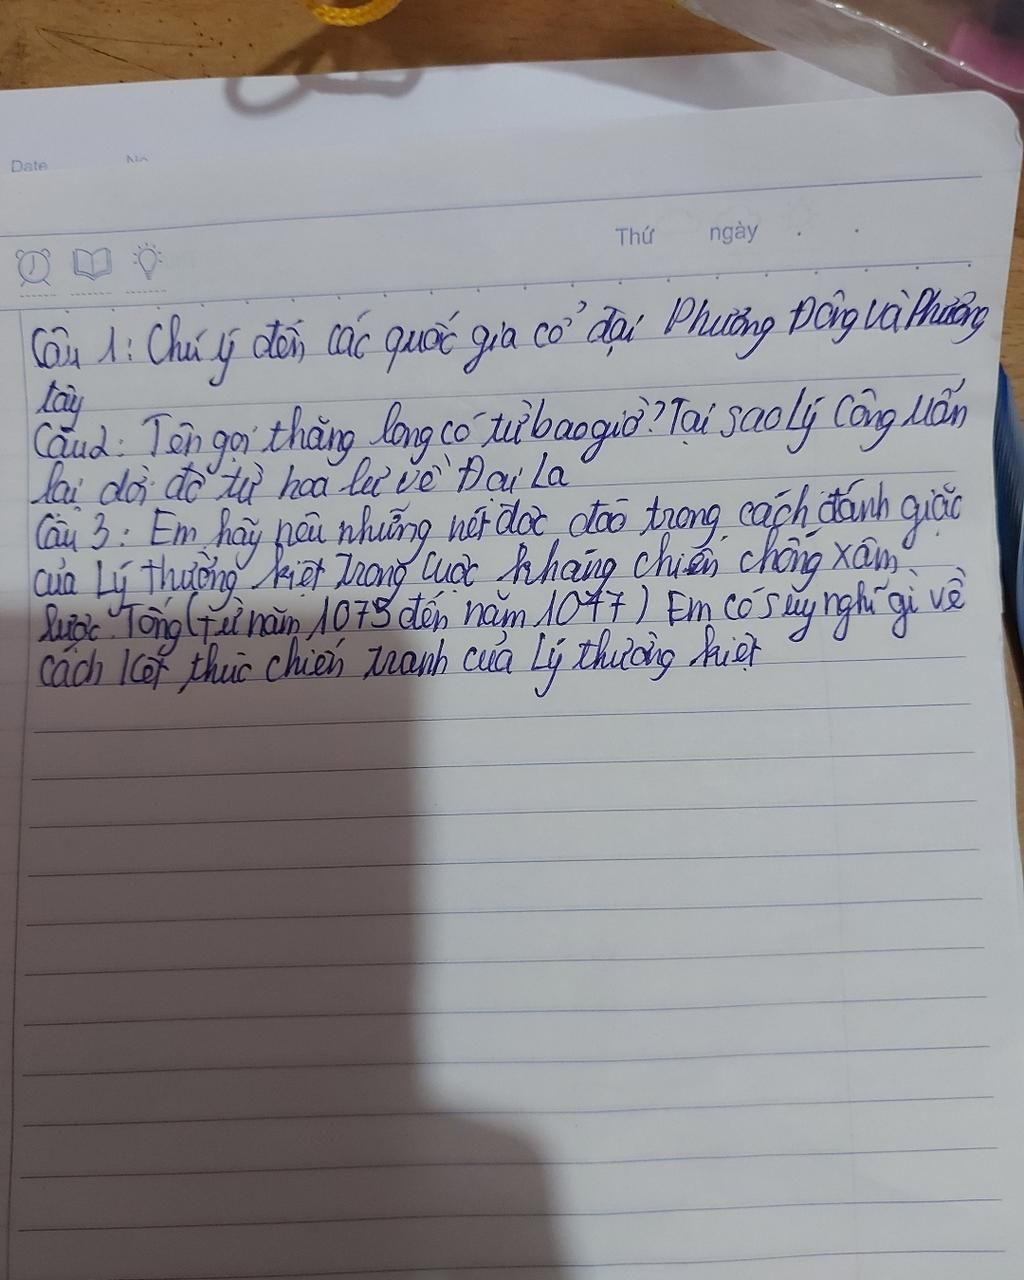 Date No
Thứ ngày . .
Câu 1: Chú ý đến các quốc gia cổ đại Phương Đông và Phương
tây
Câu 2: Tên gọi thăng long có từ bao giờ? Tại sao Lý Công Uẩn
lại dời đô từ hoa lư về Đại La
Câu 3: Em hãy nêu những nét độc đáo trong cách đánh giặc
của Lý thường kiệt trong cuộc kháng chiến chống xâm
lược Tống (từ năm 1075 đến năm 1077) Em có suy nghĩ gì về
cách kết thúc chiến tranh của Lý thường kiệt